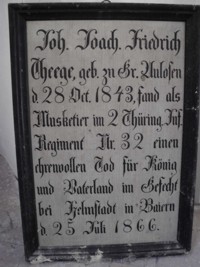 Joh. Joach. Friedrich
Theege, geb. zu Gr. Aulosen
d. 28 Oct. 1843, fand als
Musketier im 2 Thüring. Inf.
Regiment Nr. 32 einen
ehrenvollen Tod für König
und Vaterland im Gefecht
bei Helmstadt in Baiern
d. 25 Juli 1866.